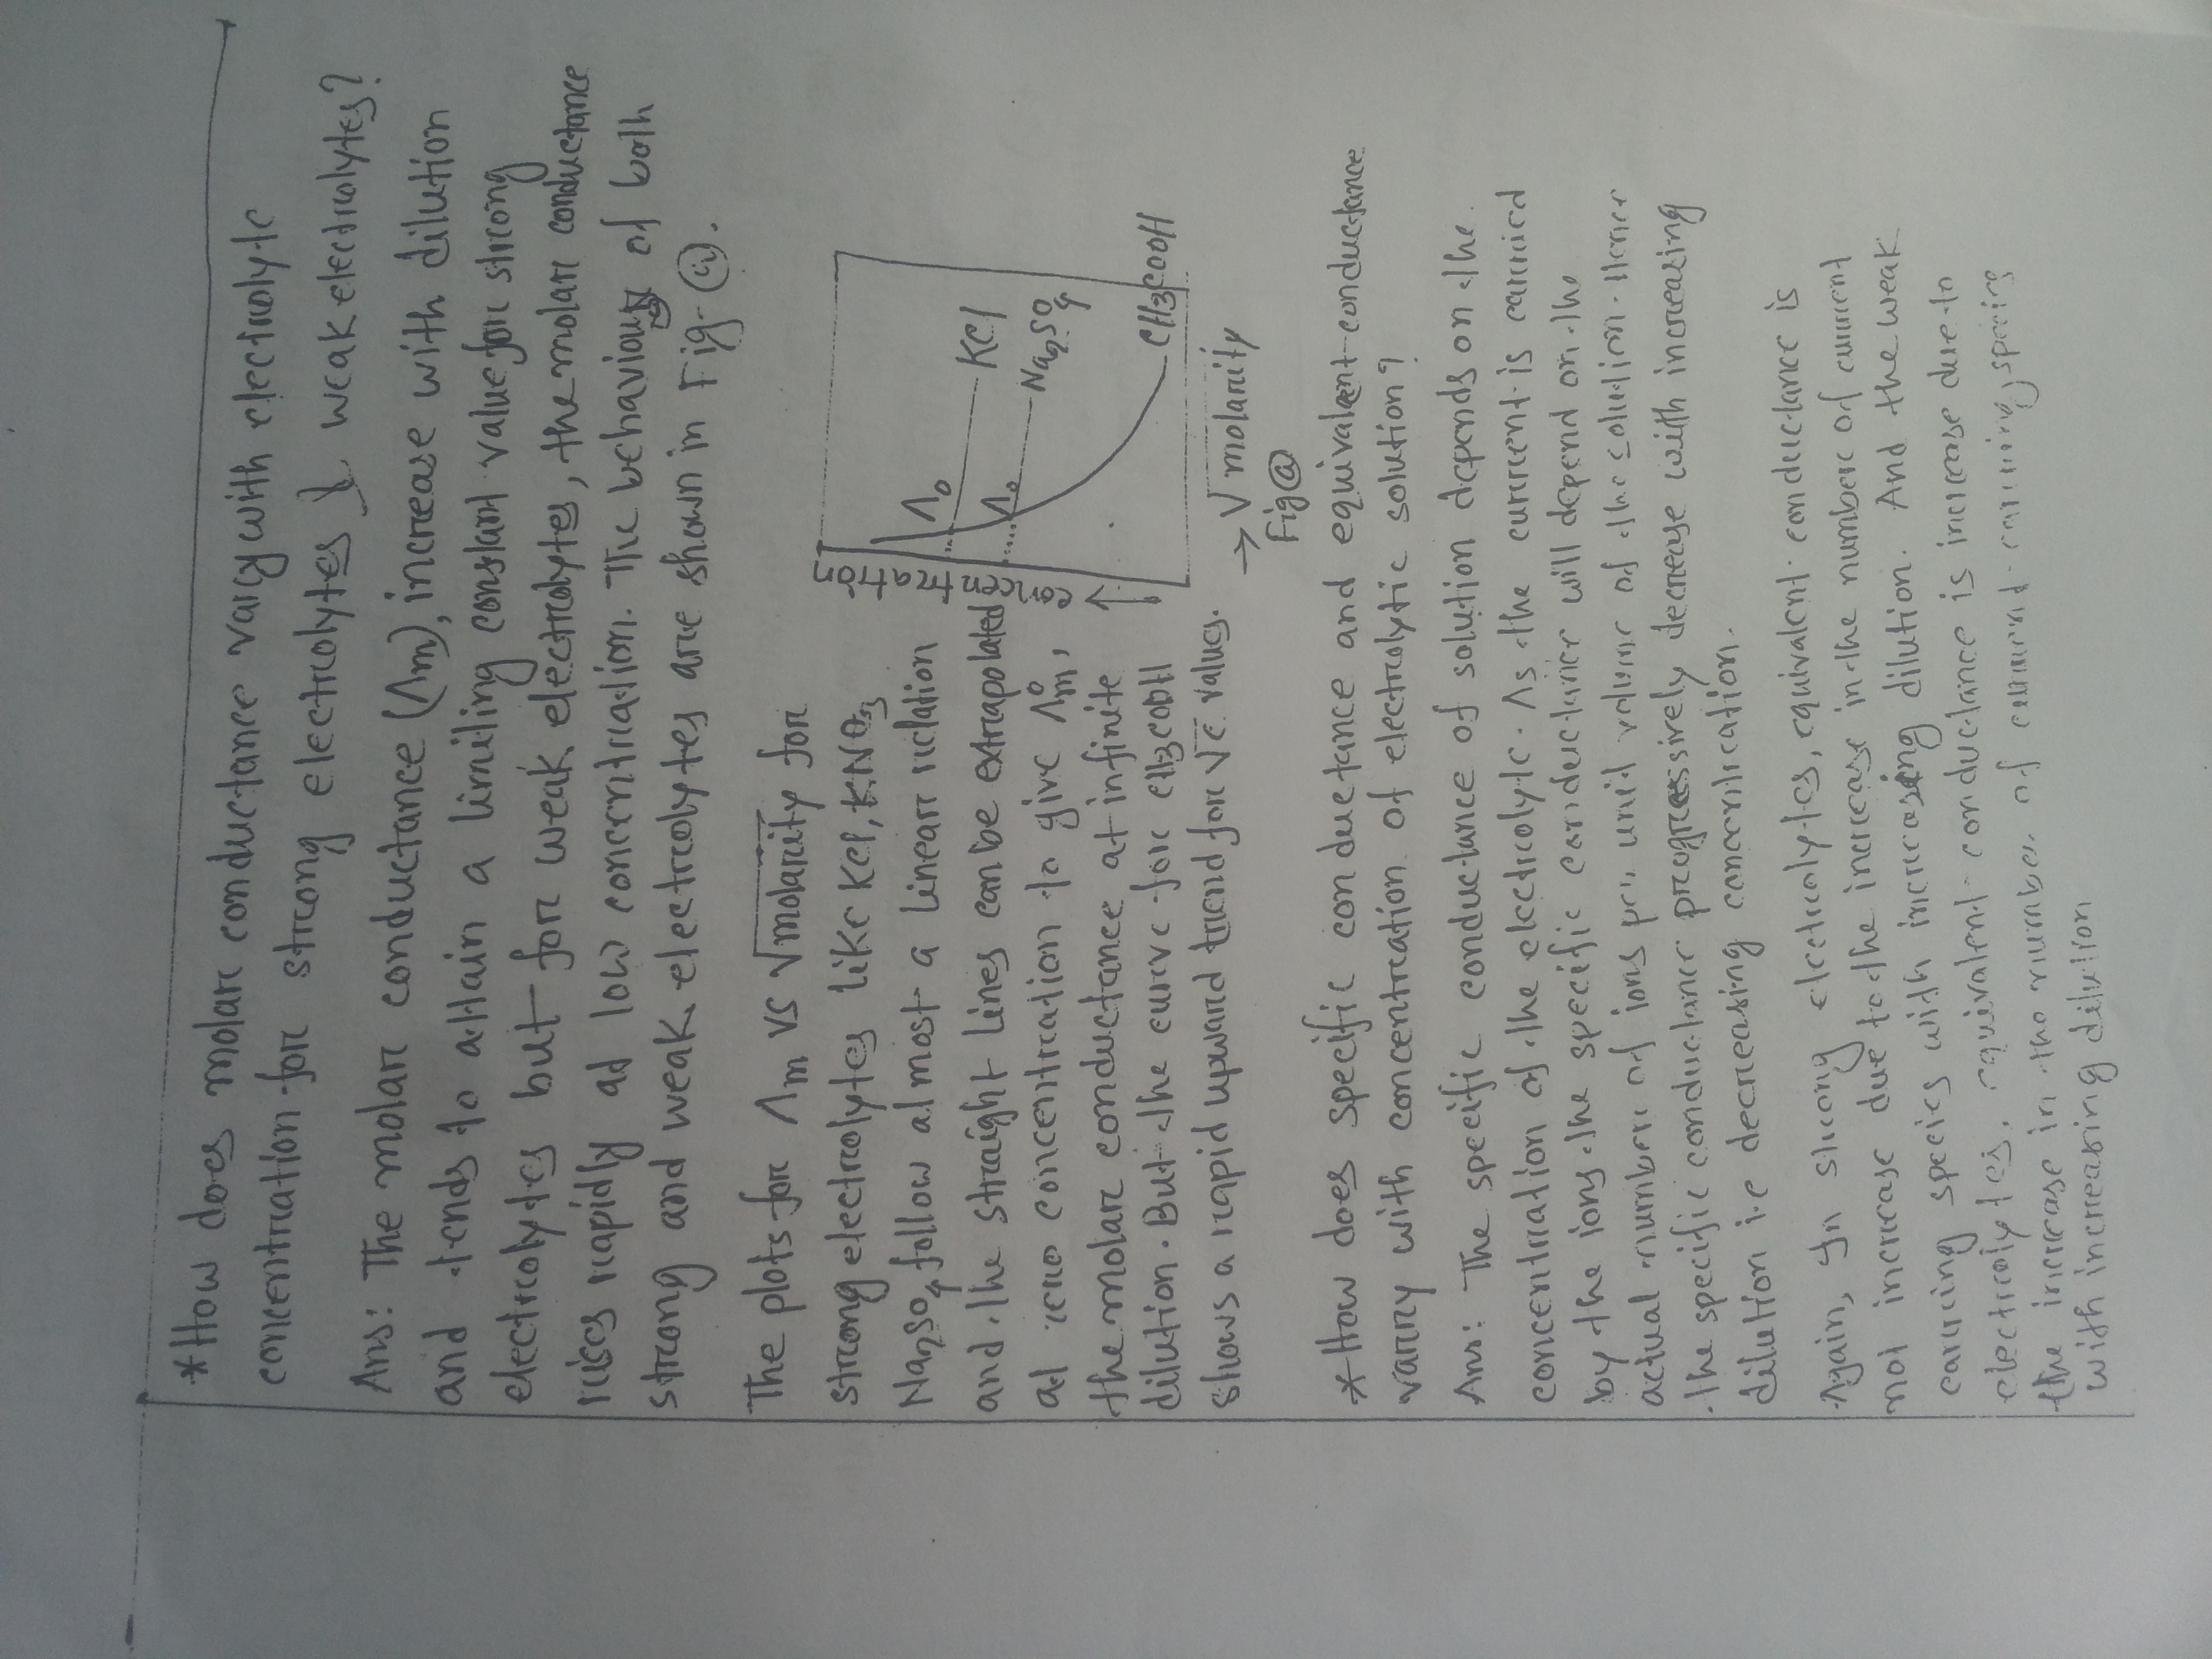 *How does molar conductance vary with electrolytic
concentration for strong electrolytes & weak electrolytes?
Ans: The molar conductance (Λm), increase with dilution
and tends to attain a limiting constant value for strong
electrolytes but for weak electrolytes, the molar conductance
rises rapidly at low concentration. The behaviour of both
strong and weak electrolytes are shown in Fig-ⓐ.
The plots for Λm vs √molarity for
strong electrolytes like KCl, KNO3
Na2SO4 follow almost a linear relation
and the straight lines can be extrapolated
at zero concentration to give Λ°m,
the molar conductance at infinite
dilution. But the curve for CH3COOH
shows a rapid upward trend for √c values.
Concentration
Λ0
KCl
Λ0
Na2SO4
CH3COOH
→ √molarity
Fig ⓐ
*How does specific conductance and equivalent conductance
varry with concentration of electrolytic solution?
Ans: The specific conductance of solution depends on the
concentration of the electrolytc. As the current is carried
by the ions the specific conductance will depend on the
actual number of ions per unit volume of the solution. Hence
the specific conductance progressively decrease with increasing
dilution i.e decreasing concentration.
Again, In strong electrolytes, equivalent conductance is
not increase due to the increase in the number of current
carrying species with increasing dilution. And the weak
electrolytes, equivalent conductance is increase due to
the increase in the number of current carrying species
with increasing dilution